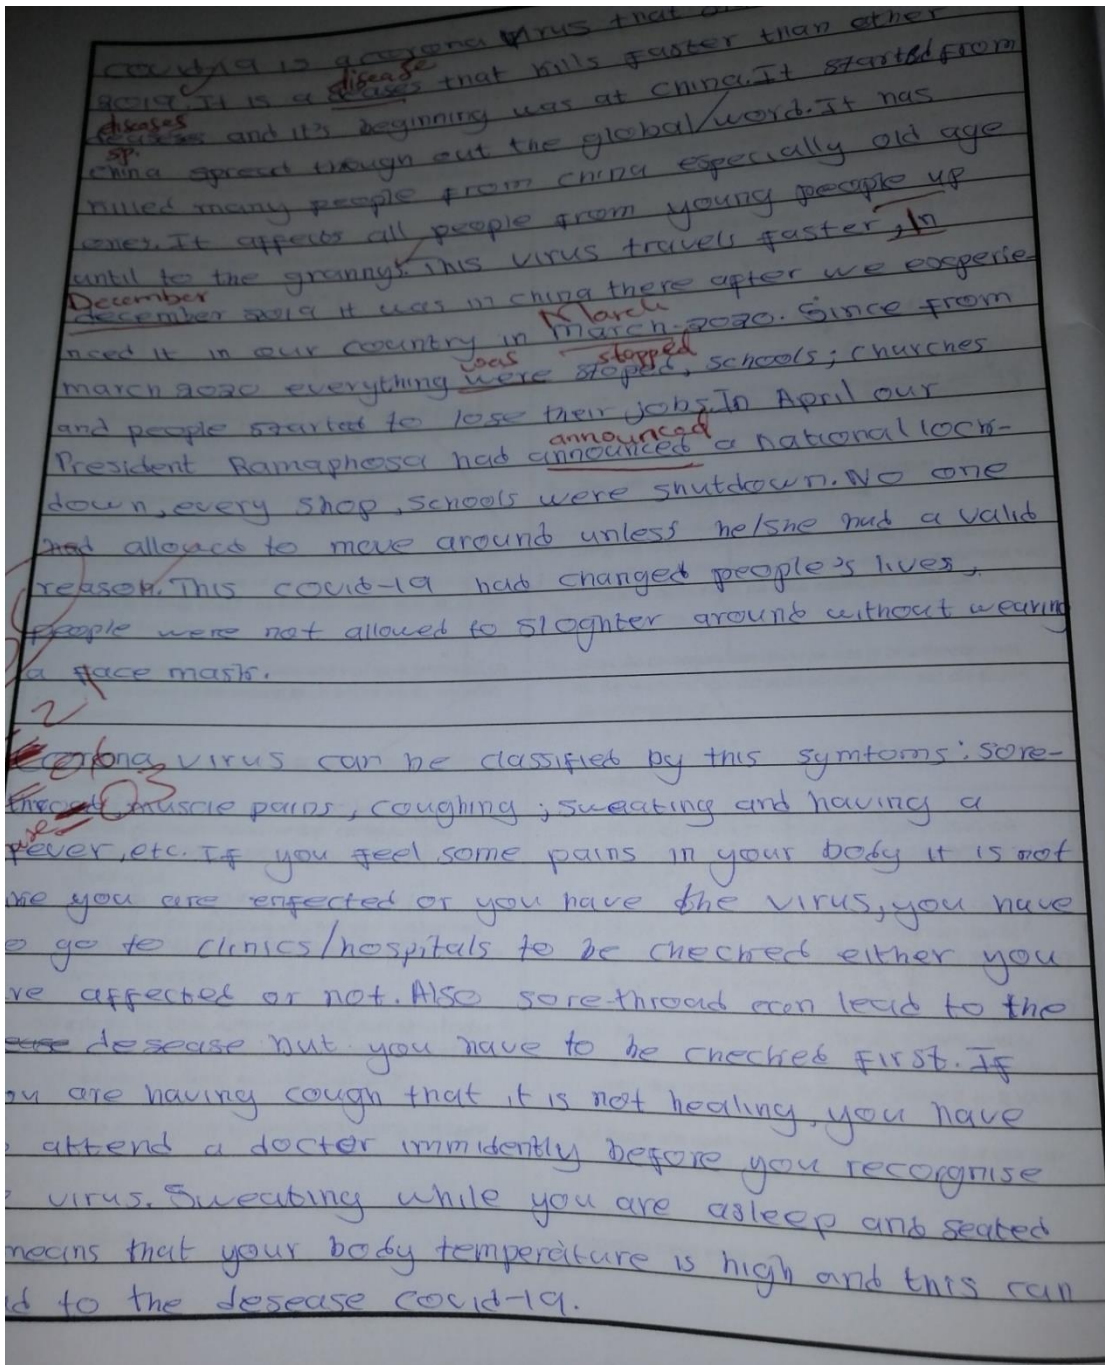 covid-19 is a corona virus that
2019. It is a deases that kills faster than other
disease
diseases
deases and it's beginning was at china. It started from
sp.
china spread though out the global/word. It has
killed many people from china especially old age
ones. It affects all people from young people up
until to the granny's. This virus travels faster, In
December
december 2019 it was in china there after we eosperie-
March
nced it in our country in march 2020. Since from
was stopped
march 2020 everything were stoped, schools; churches
and people started to lose their jobs. In April our
announced
President Ramaphosa had announced a national lock-
down, every shop, schools were shutdown. No one
had allowed to move around unless he/she had a valid
reason. This covid-19 had changed people's lives,
people were not allowed to sloghter around without wearing
a face mask.
2
corona virus can be classified by this symtoms: sore-
throad muscle pains, coughing; sweating and having a
fever, etc. If you feel some pains in your body it is not
like you are enfected or you have the virus, you have
go to clinics/hospitals to be checked either you
re affected or not. Also sore throad can lead to the
desease but you have to be checked first. If
ou are having cough that it is not healing, you have
attend a doctor immidently before you recorgnise
virus. Sweating while you are asleep and seated
means that your body temperature is high and this can
d to the desease covid-19.